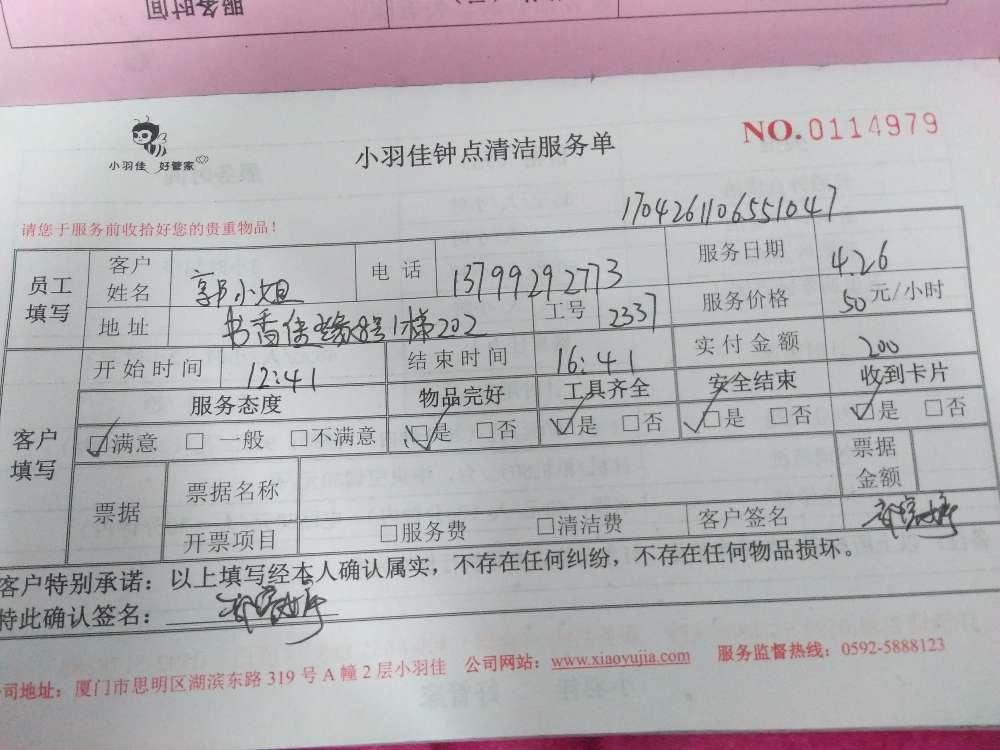 服务时间
小羽佳 好管家
小羽佳钟点清洁服务单
NO.0114979
1704261106551047
请您于服务前收拾好您的贵重物品!
员工填写 客户姓名 郭小姐 电话 13799292773 服务日期 4.26
地址 书香佳缘8号1梯202 工号 2337 服务价格 50元/小时
客户填写 开始时间 12:41 结束时间 16:41 实付金额 200
服务态度 物品完好 工具齐全 安全结束 收到卡片
☑满意 □一般 □不满意 ☑是 □否 ☑是 □否 ☑是 □否 ☑是 □否
票据 票据名称 票据金额
开票项目 □服务费 □清洁费 客户签名
客户特别承诺:以上填写经本人确认属实,不存在任何纠纷,不存在任何物品损坏。
特此确认签名:
公司地址:厦门市思明区湖滨东路319号A幢2层小羽佳 公司网站:www.xiaoyujia.com 服务监督热线:0592-5888123